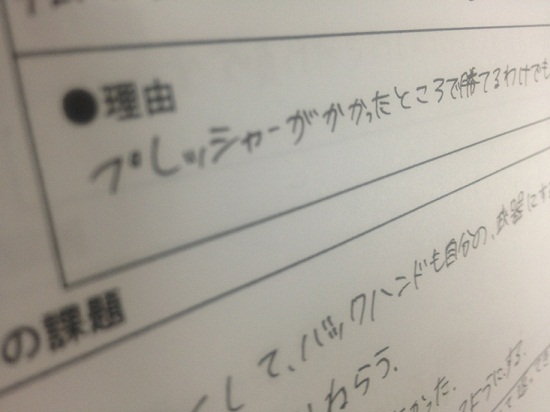 ●理由
プレッシャーがかかったところで勝てるわけでも
の課題
して、バックハンドも自分の、武器にす
ねらう.
かった.
ようにする.